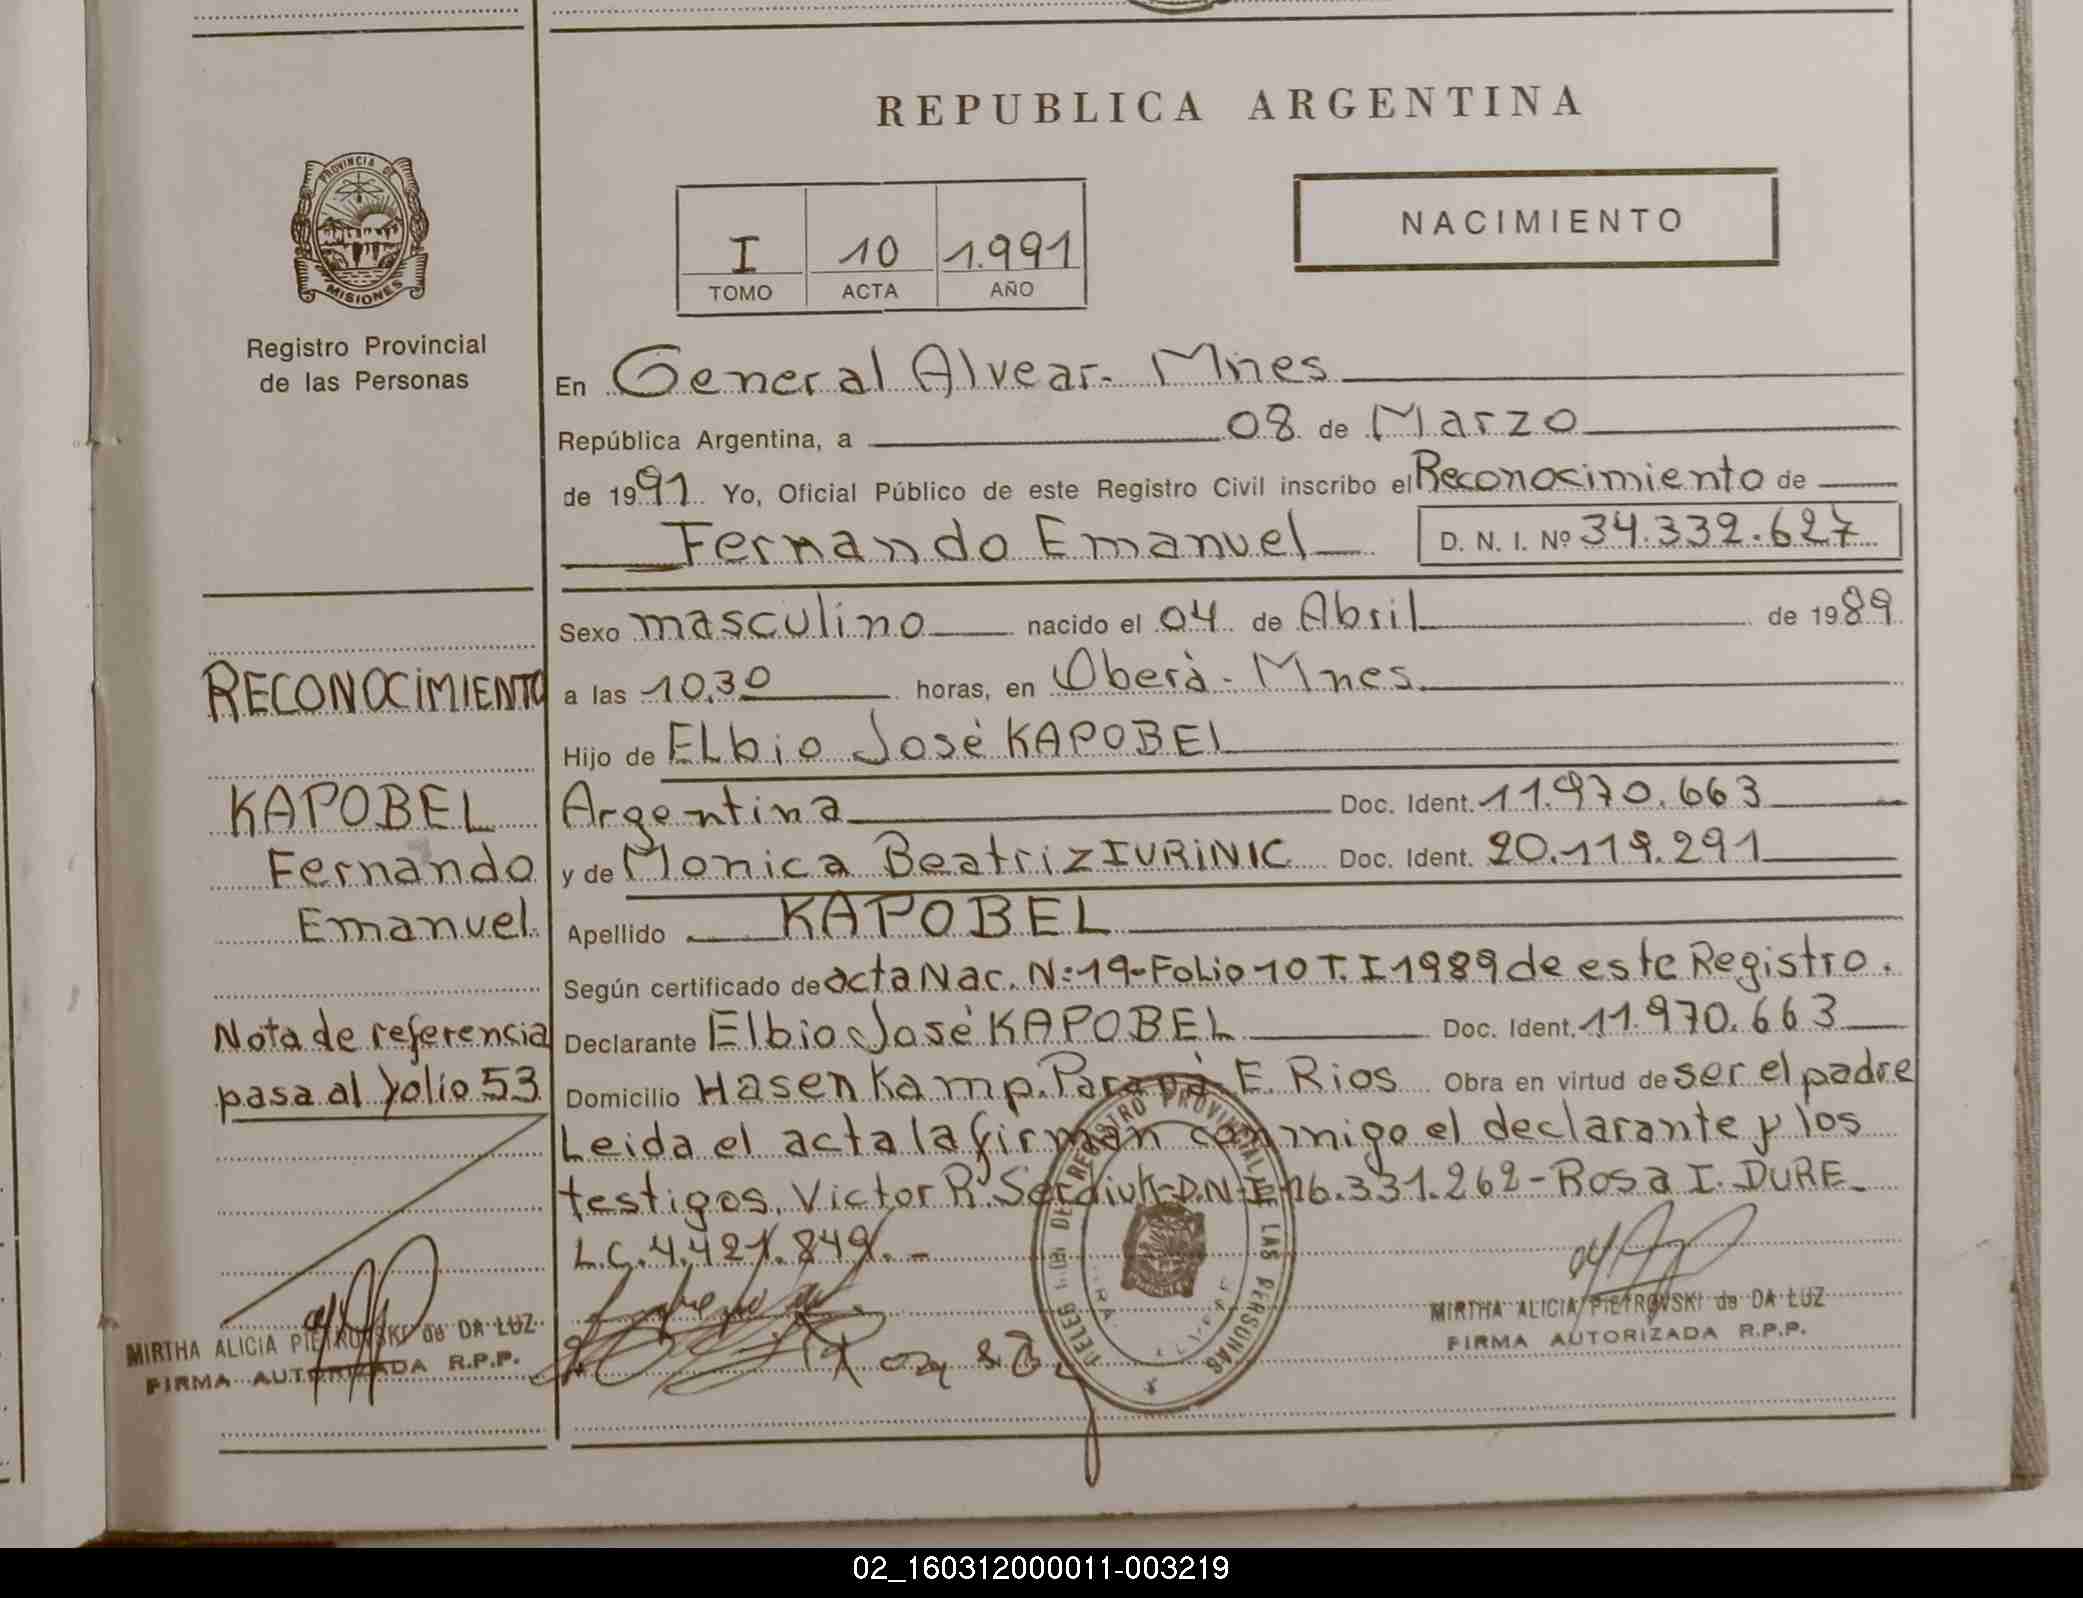 REPUBLICA ARGENTINA
PROVINCIA DE
MISIONES
Registro Provincial
de las Personas
I 10 1.991
TOMO ACTA AÑO
NACIMIENTO
En General Alvear. Mnes
República Argentina, a 08 de Marzo
de 1991 Yo, Oficial Público de este Registro Civil inscribo el Reconocimiento de
Fernando Emanuel D. N. I. Nº 34.332.627
Sexo masculino nacido el 04 de Abril de 1989
a las 10.30 horas, en Oberà - Mnes
Hijo de ELbio Josè KAPOBEL
Argentina Doc. Ident. 11.970.663
y de Monica Beatriz IURiNIC Doc. Ident. 20.119.291
Apellido KAPOBEL
Según certificado de acta Nac. N: 19-Folio 10 T. I 1989 de este Registro.
Declarante Elbio Josè KAPOBEL Doc. Ident. 11.970.663
Domicilio Hasenkamp. Paranà E. Rios Obra en virtud de ser el padre
Leida el acta la firman conmigo el declarante y los
testigos, Victor R. Serdiuk-D.N.I 16.331.262-Rosa I. DURE
L.C. 4.421.849.-
RECONOCiMIENTO
KAPOBEL
Fernando
Emanuel
Nota de referencia
pasa al folio 53
MIRTHA ALICIA PIETROVSKI de DA LUZ
FIRMA AUTORIZADA R.P.P.
DEL REGISTRO PROVINCIAL DE LAS PERSONAS
MIRTHA ALICIA PIETROVSKI de DA LUZ
FIRMA AUTORIZADA R.P.P.
02_160312000011-003219